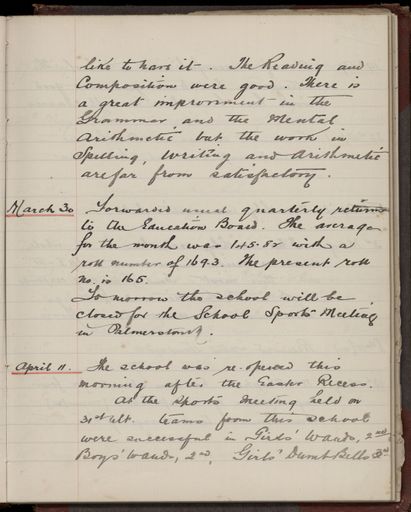 like to have it. The Reading and
Composition were good. There is
a great improvment in the
Grammar and the Mental
Arithmetic but the work in
Spelling, Writing and Arithmetic
are far from satisfactory.
March 30 Forwarded usual quarterly returns
to the Education Board. The average
for the month was 145.82 with a
roll number of 169.3. The present roll
no. is 165.
To morrow the school will be
closed for the School Sports Meeting
in Palmerston N.
April 11. The school was re-opened this
morning after the Easter Recess.
At the sports meeting held on
31st ult. teams from this school
were successful in Girls' Wands, 2nd
Boys' Wands, 2nd, Girls' Dumb Bells 3rd